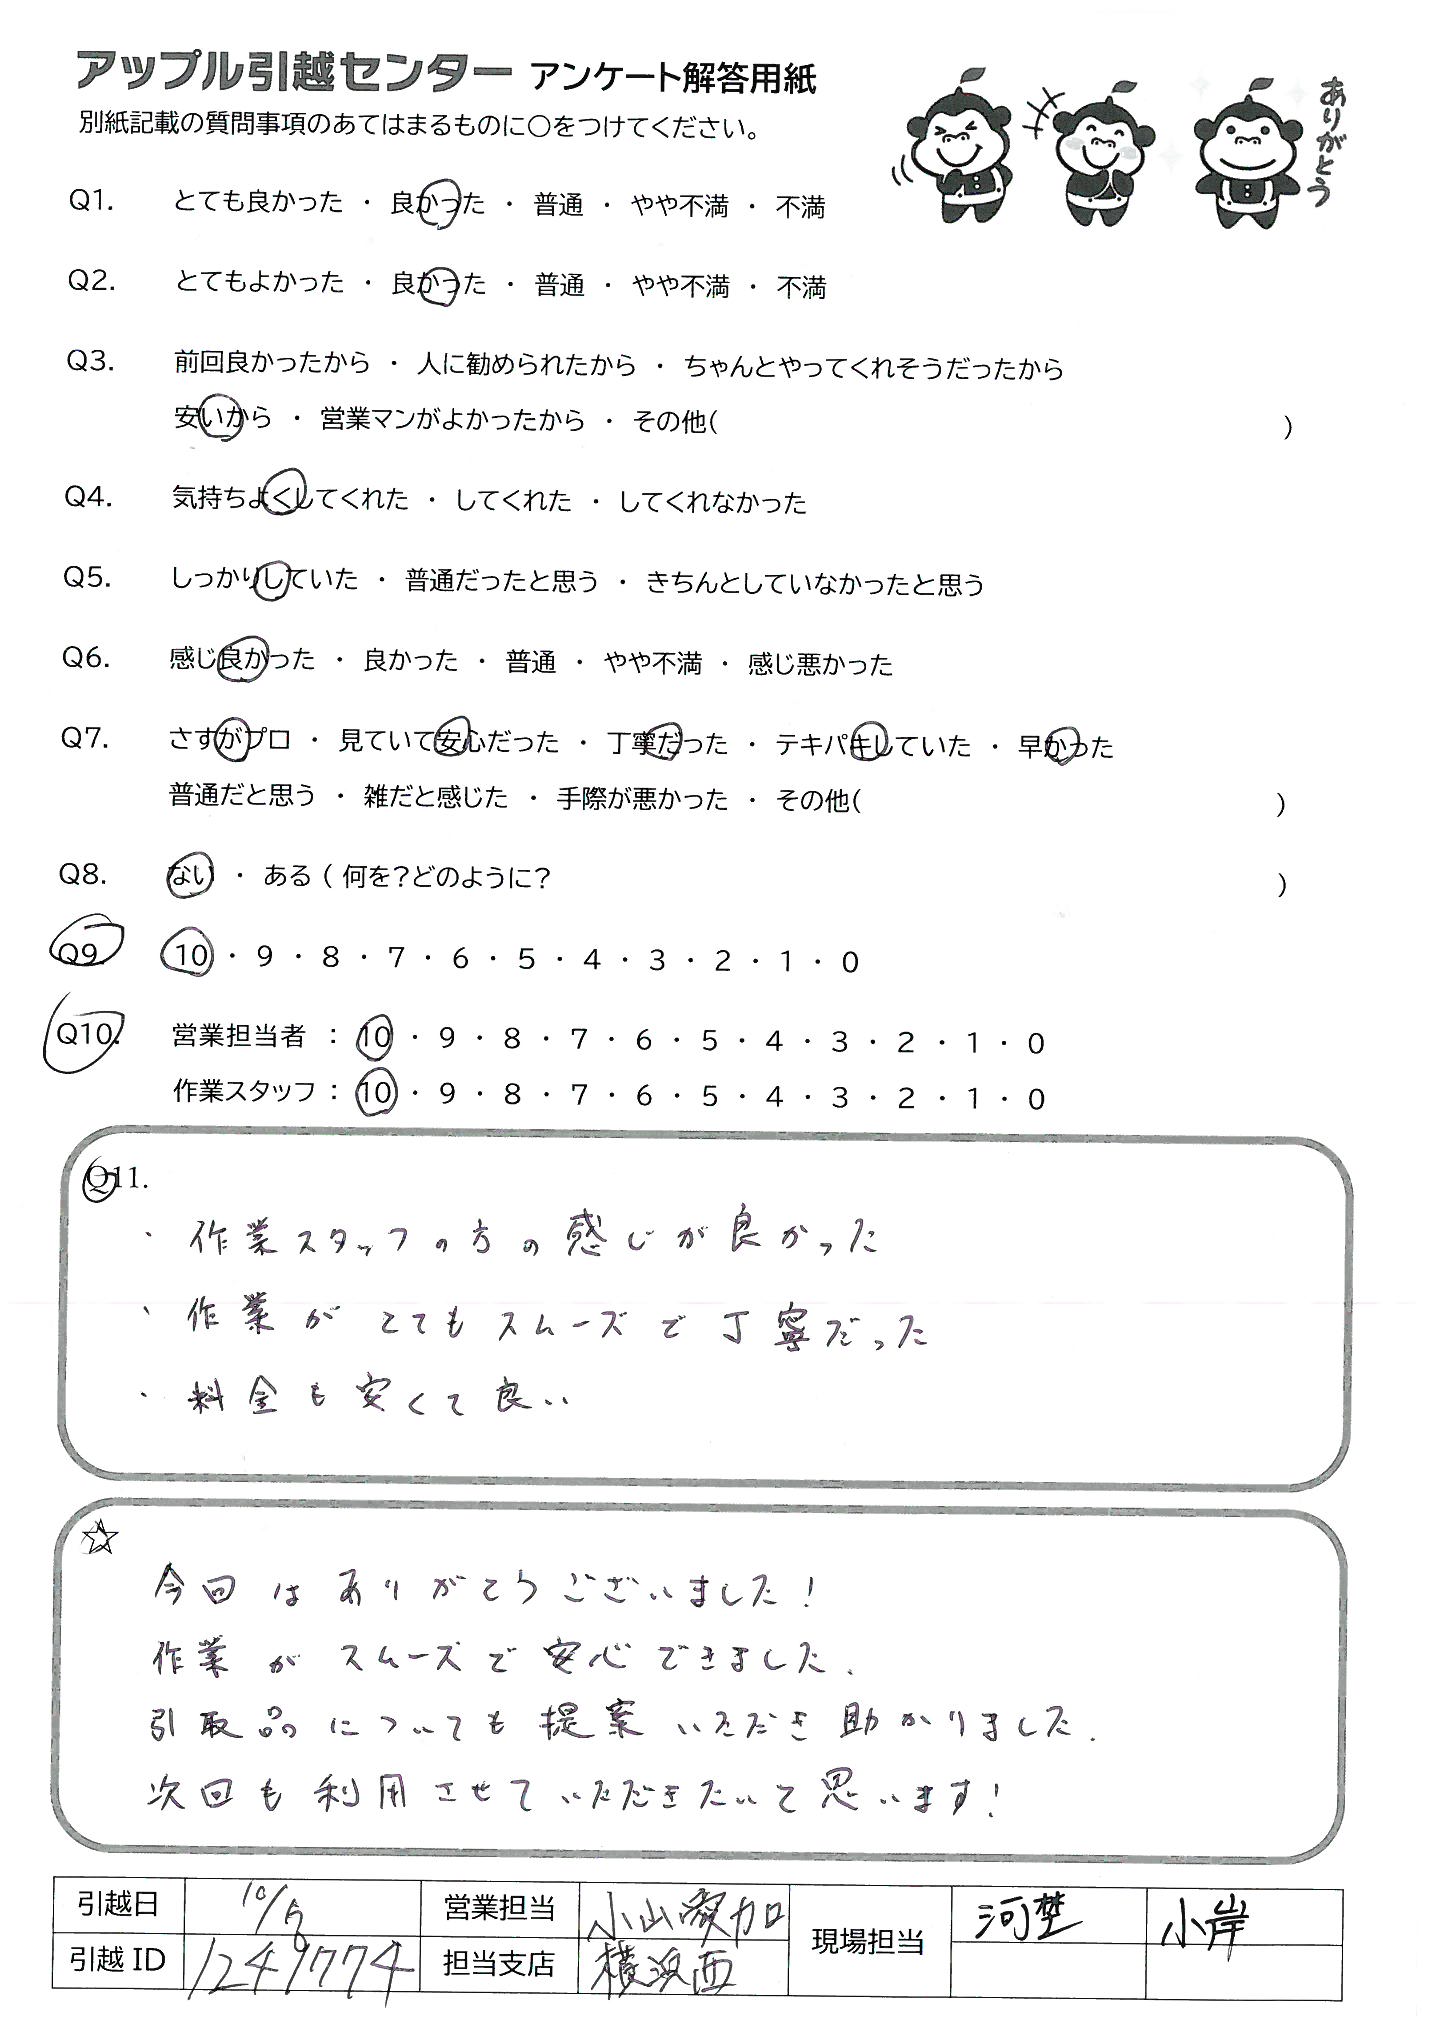 アップル引越センター アンケート解答用紙
ありがとう
別紙記載の質問事項のあてはまるものに○をつけてください。
Q1. とても良かった ・ 良かった ・ 普通 ・ やや不満 ・ 不満
Q2. とてもよかった ・ 良かった ・ 普通 ・ やや不満 ・ 不満
Q3. 前回良かったから ・ 人に勧められたから ・ ちゃんとやってくれそうだったから
安いから ・ 営業マンがよかったから ・ その他( )
Q4. 気持ちよくしてくれた ・ してくれた ・ してくれなかった
Q5. しっかりしていた ・ 普通だったと思う ・ きちんとしていなかったと思う
Q6. 感じ良かった ・ 良かった ・ 普通 ・ やや不満 ・ 感じ悪かった
Q7. さすがプロ ・ 見ていて安心だった ・ 丁寧だった ・ テキパキしていた ・ 早かった
普通だと思う ・ 雑だと感じた ・ 手際が悪かった ・ その他( )
Q8. ない ・ ある ( 何を？どのように？ )
Q9. 10 ・ 9 ・ 8 ・ 7 ・ 6 ・ 5 ・ 4 ・ 3 ・ 2 ・ 1 ・ 0
Q10. 営業担当者 ： 10 ・ 9 ・ 8 ・ 7 ・ 6 ・ 5 ・ 4 ・ 3 ・ 2 ・ 1 ・ 0
作業スタッフ： 10 ・ 9 ・ 8 ・ 7 ・ 6 ・ 5 ・ 4 ・ 3 ・ 2 ・ 1 ・ 0
Q11.
・ 作業スタッフの方の感じが良かった
・ 作業がとてもスムーズで丁寧だった
・ 料金も安くて良い
☆
今回はありがとうございました!
作業がスムーズで安心できました.
引取品についても提案いただき助かりました.
次回も利用させていただきたいと思います!
引越日 営業担当 小山 現場担当 河埜 小岸
引越ID 1249774 担当支店 横浜西